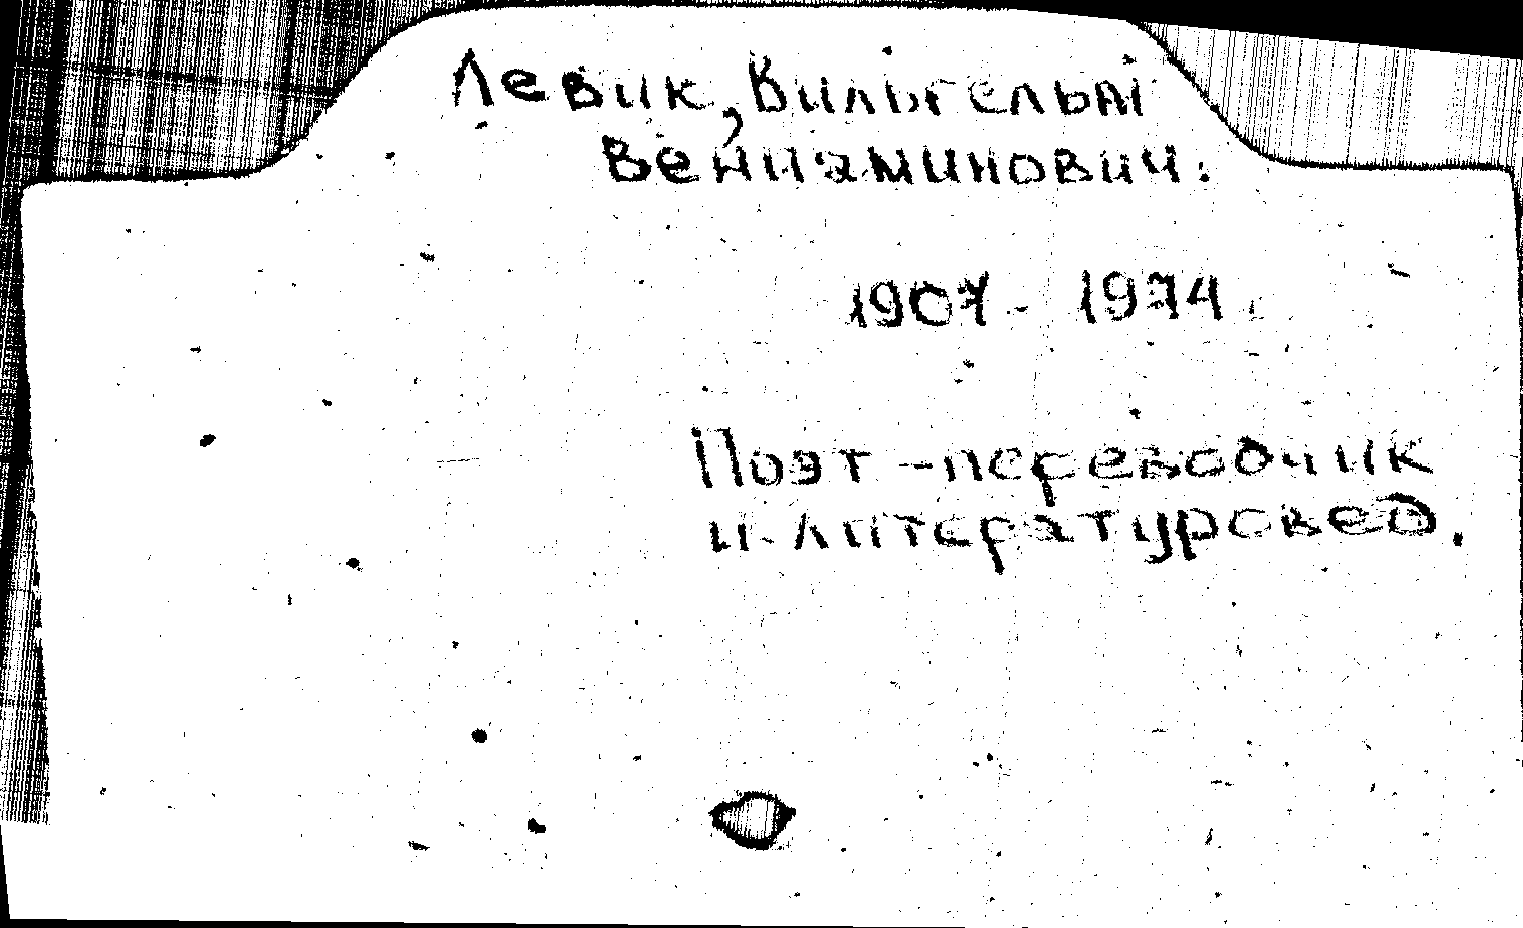 Левик, Вильгельм
Вениаминович.
1907 - 1974
Поэт - переводчик
и литературовед.